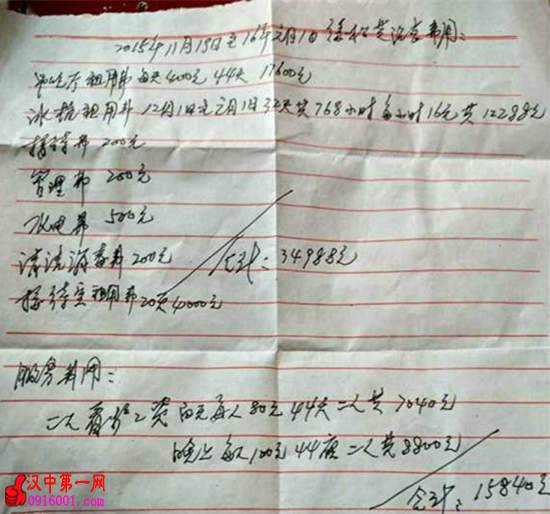 2015年11月18日至16年元月1日徐松芝治丧费用:
吊唁厅租用费每天400元 44天 17600元
冰棺租用费 12月1日至元月1日32天共768小时每小时16元共12288元
抬棺费 200元
管理费 200元
水电费 500元
清洗消毒费 200元
合计:34988元
接待室租用费20天4000元
服务费用:
二人看护工资 白天每人80元 44天 二人共7040元
晚上每人100元 44夜 二人共8800元
合计:15840元
汉中第一网
0916001.com